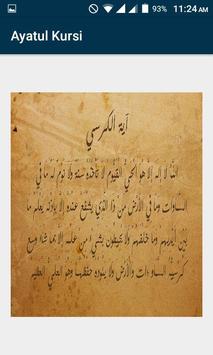 93% 11:24 AM
Ayatul Kursi
آية الكرسي
الله لا إله إلا هو الحي القيوم لا تأخذه سنة ولا نوم له ما في
السماوات وما في الأرض من ذا الذي يشفع عنده إلا بإذنه يعلم ما
بين أيديهم وما خلفهم ولا يحيطون بشيء من علمه إلا بما شاء وسع
كرسيه السماوات والأرض ولا يئوده حفظهما وهو العلي العظيم